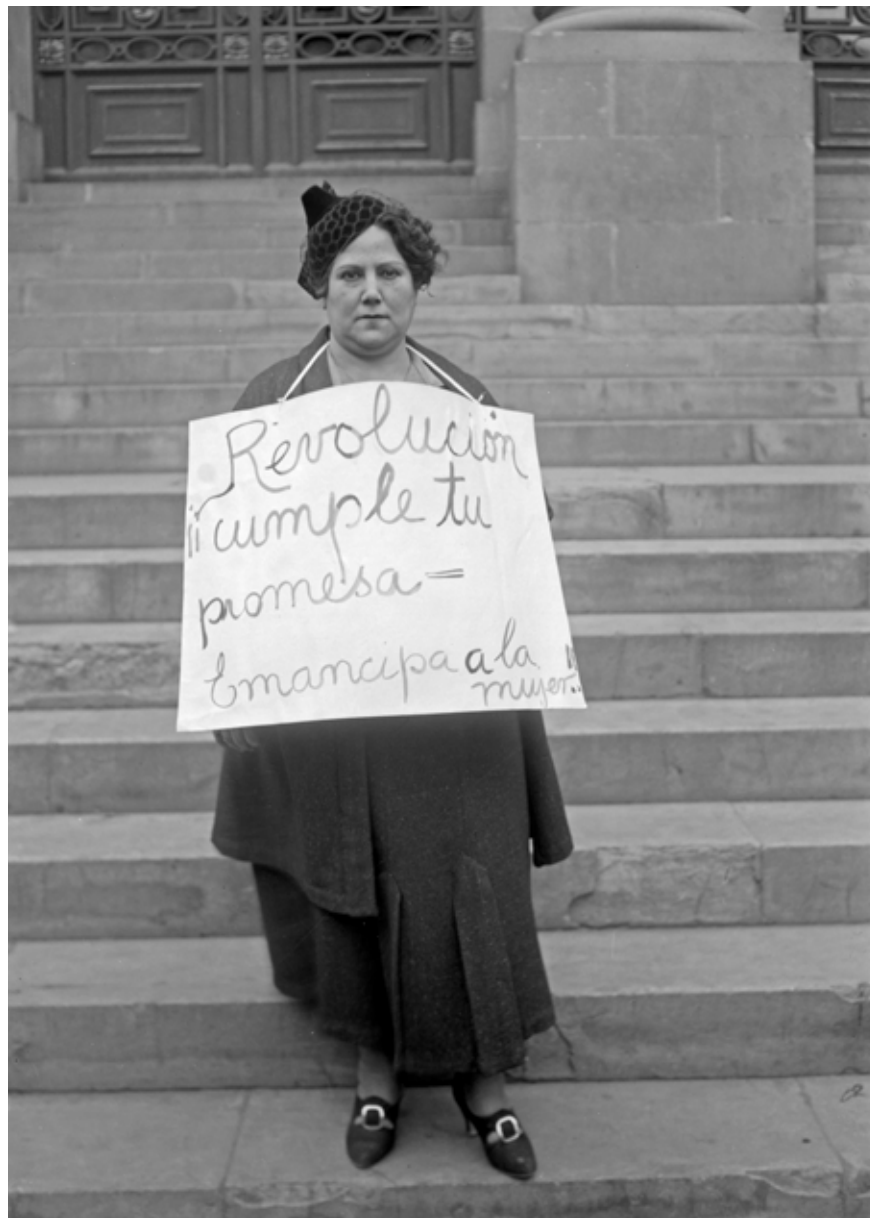 Revolución
¡¡cumple tu
promesa=
Emancipa a la
mujer!!